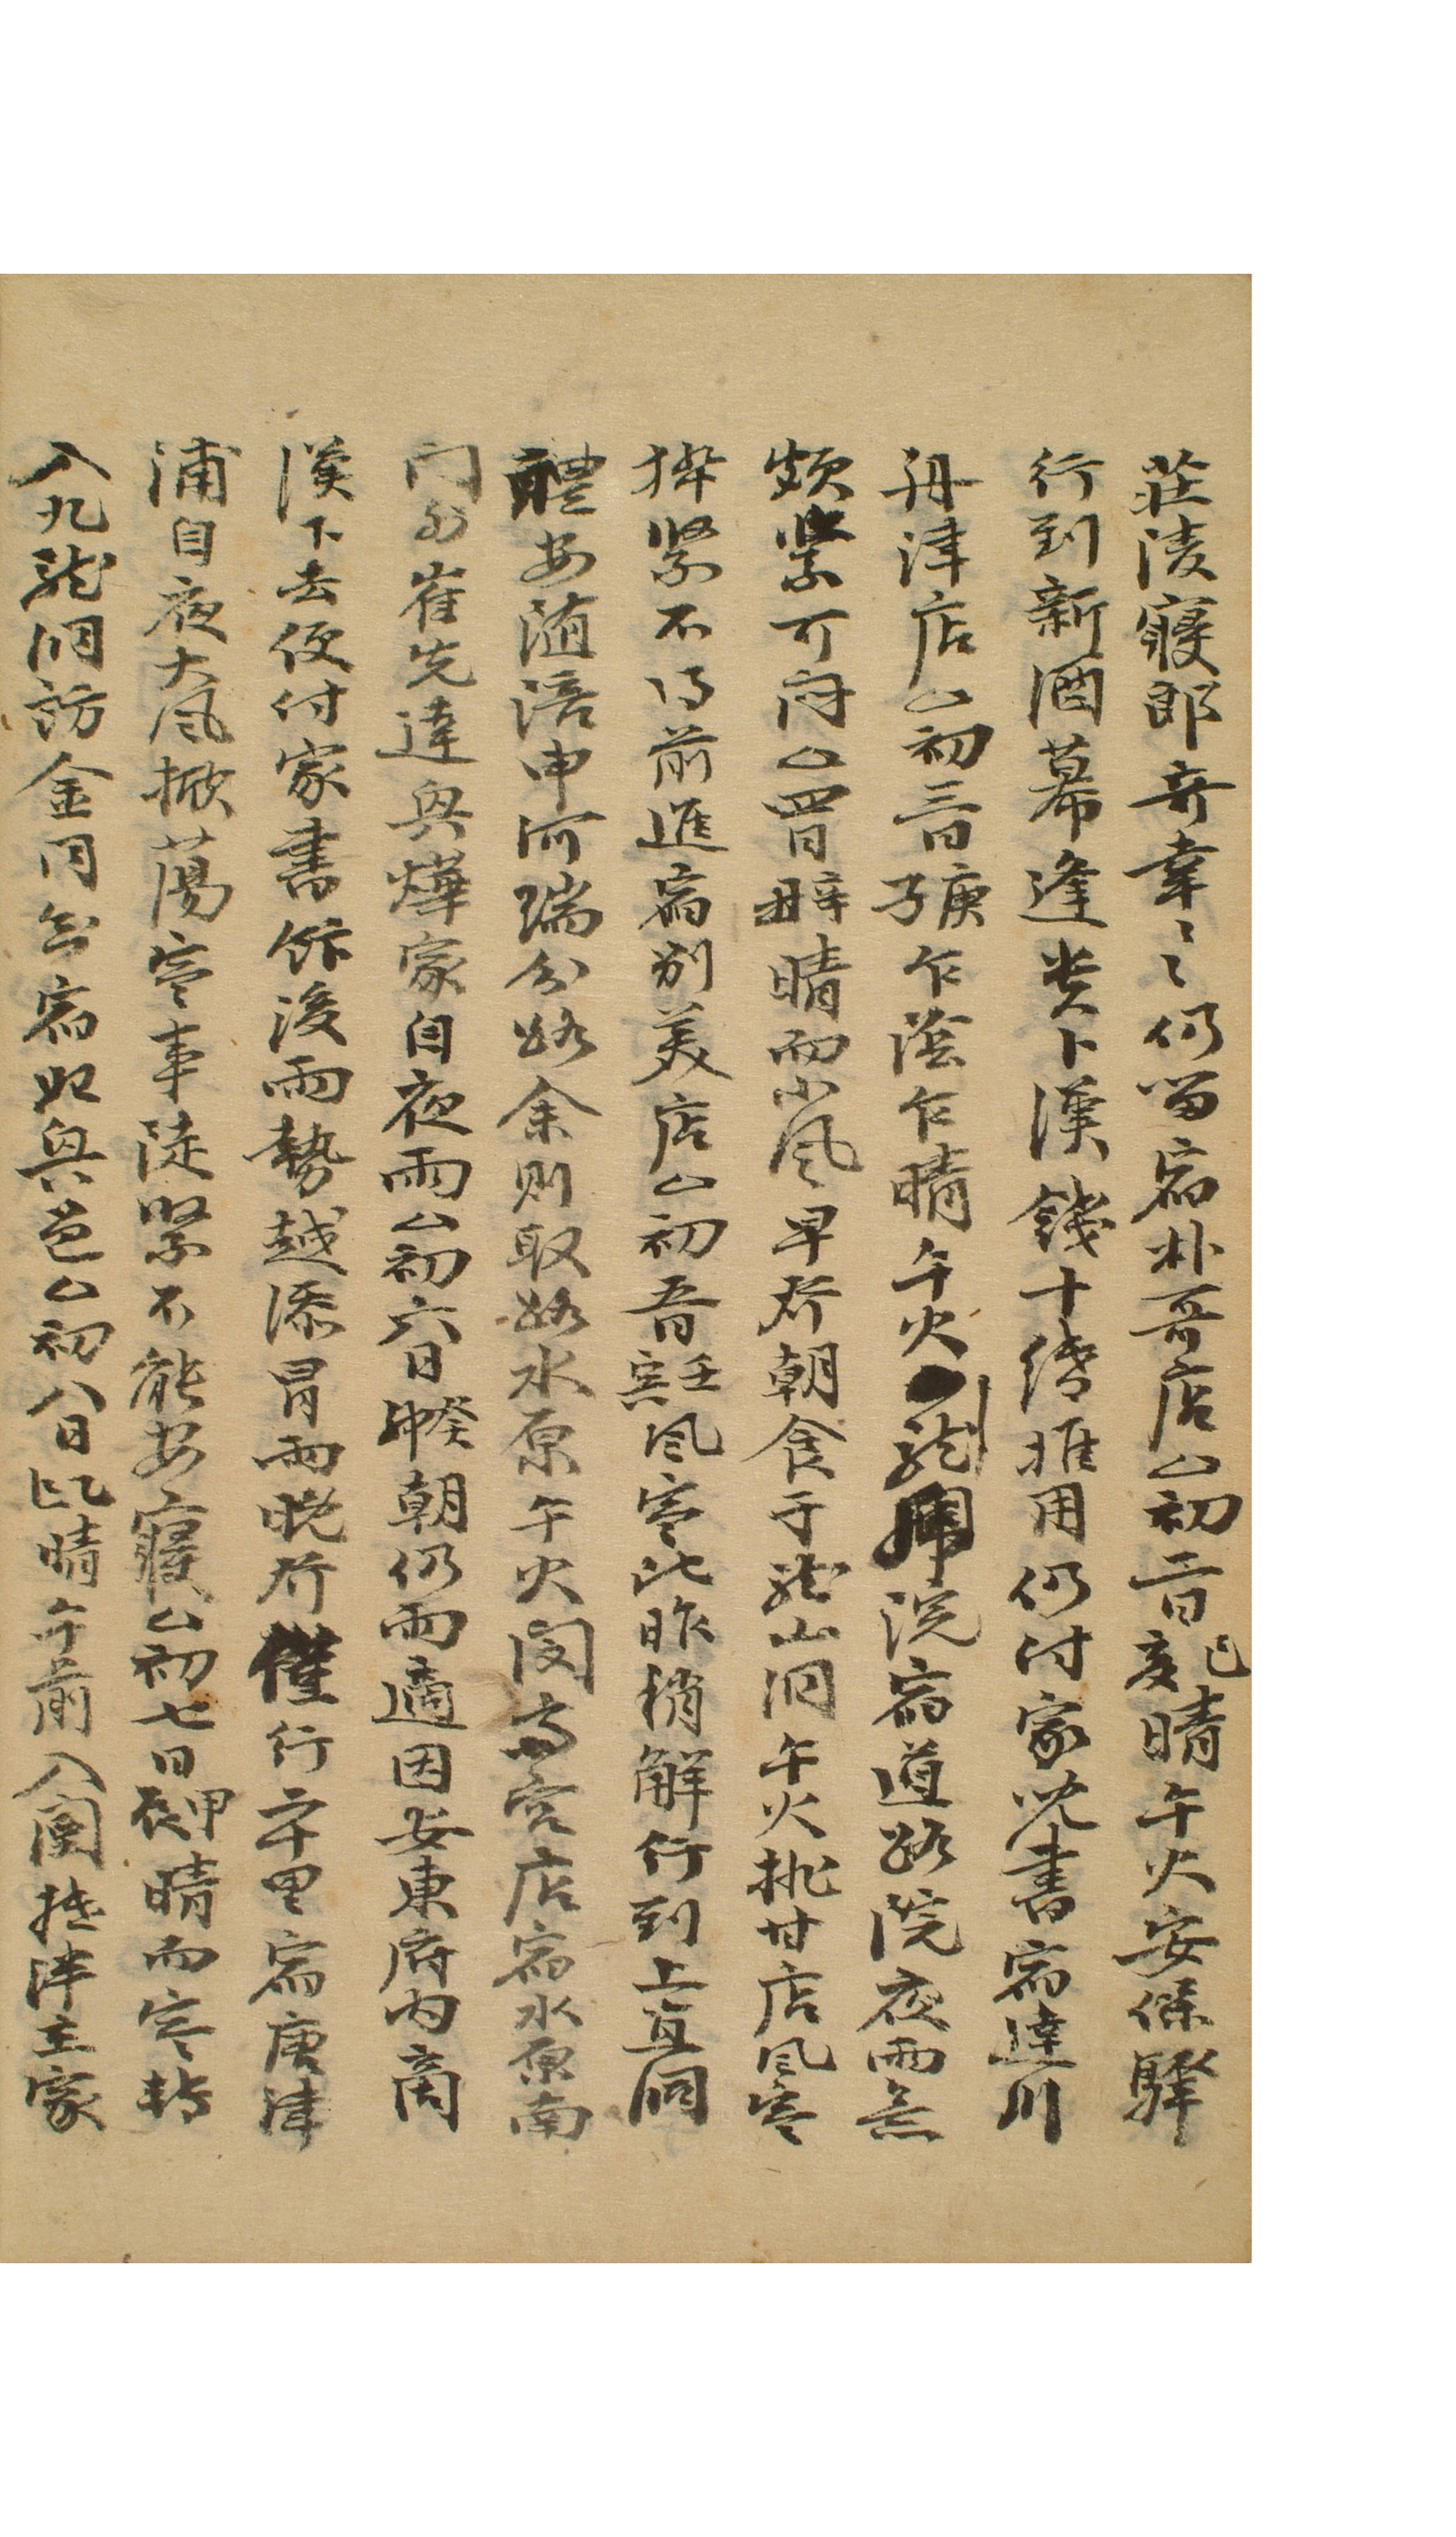 莊陵寢郎奇幸〻仍留宿朴哥店△初二日己亥晴午火安保驛
行到新酒幕逢卜漢錢十緡推用仍付家兄書宿達川
丹津店△初三日庚子乍陰乍晴午火龍院宿道路院夜雨無
頗緊可悶△四日辛丑晴而小風早行朝食于龍山洞午火批甘店風寒
猝緊不得前進宿別美店△初五日壬寅風寒比昨稍解行到上直洞
體安隨涪申河瑞分路余則取路水原午火店宿水原南
門外崔先達與燁家自夜雨△初六日癸卯朝仍雨適因安東府內商
漢下去便付家書飯後雨勢越添冒雨晚行僅行二十里宿唐津
浦自夜大風掀蕩寒事陡緊不能安寢△初七日甲辰晴而寒轉
入九龍洞訪金同知宿如與邕△初八日乙巳晴午前入圍接泮主家